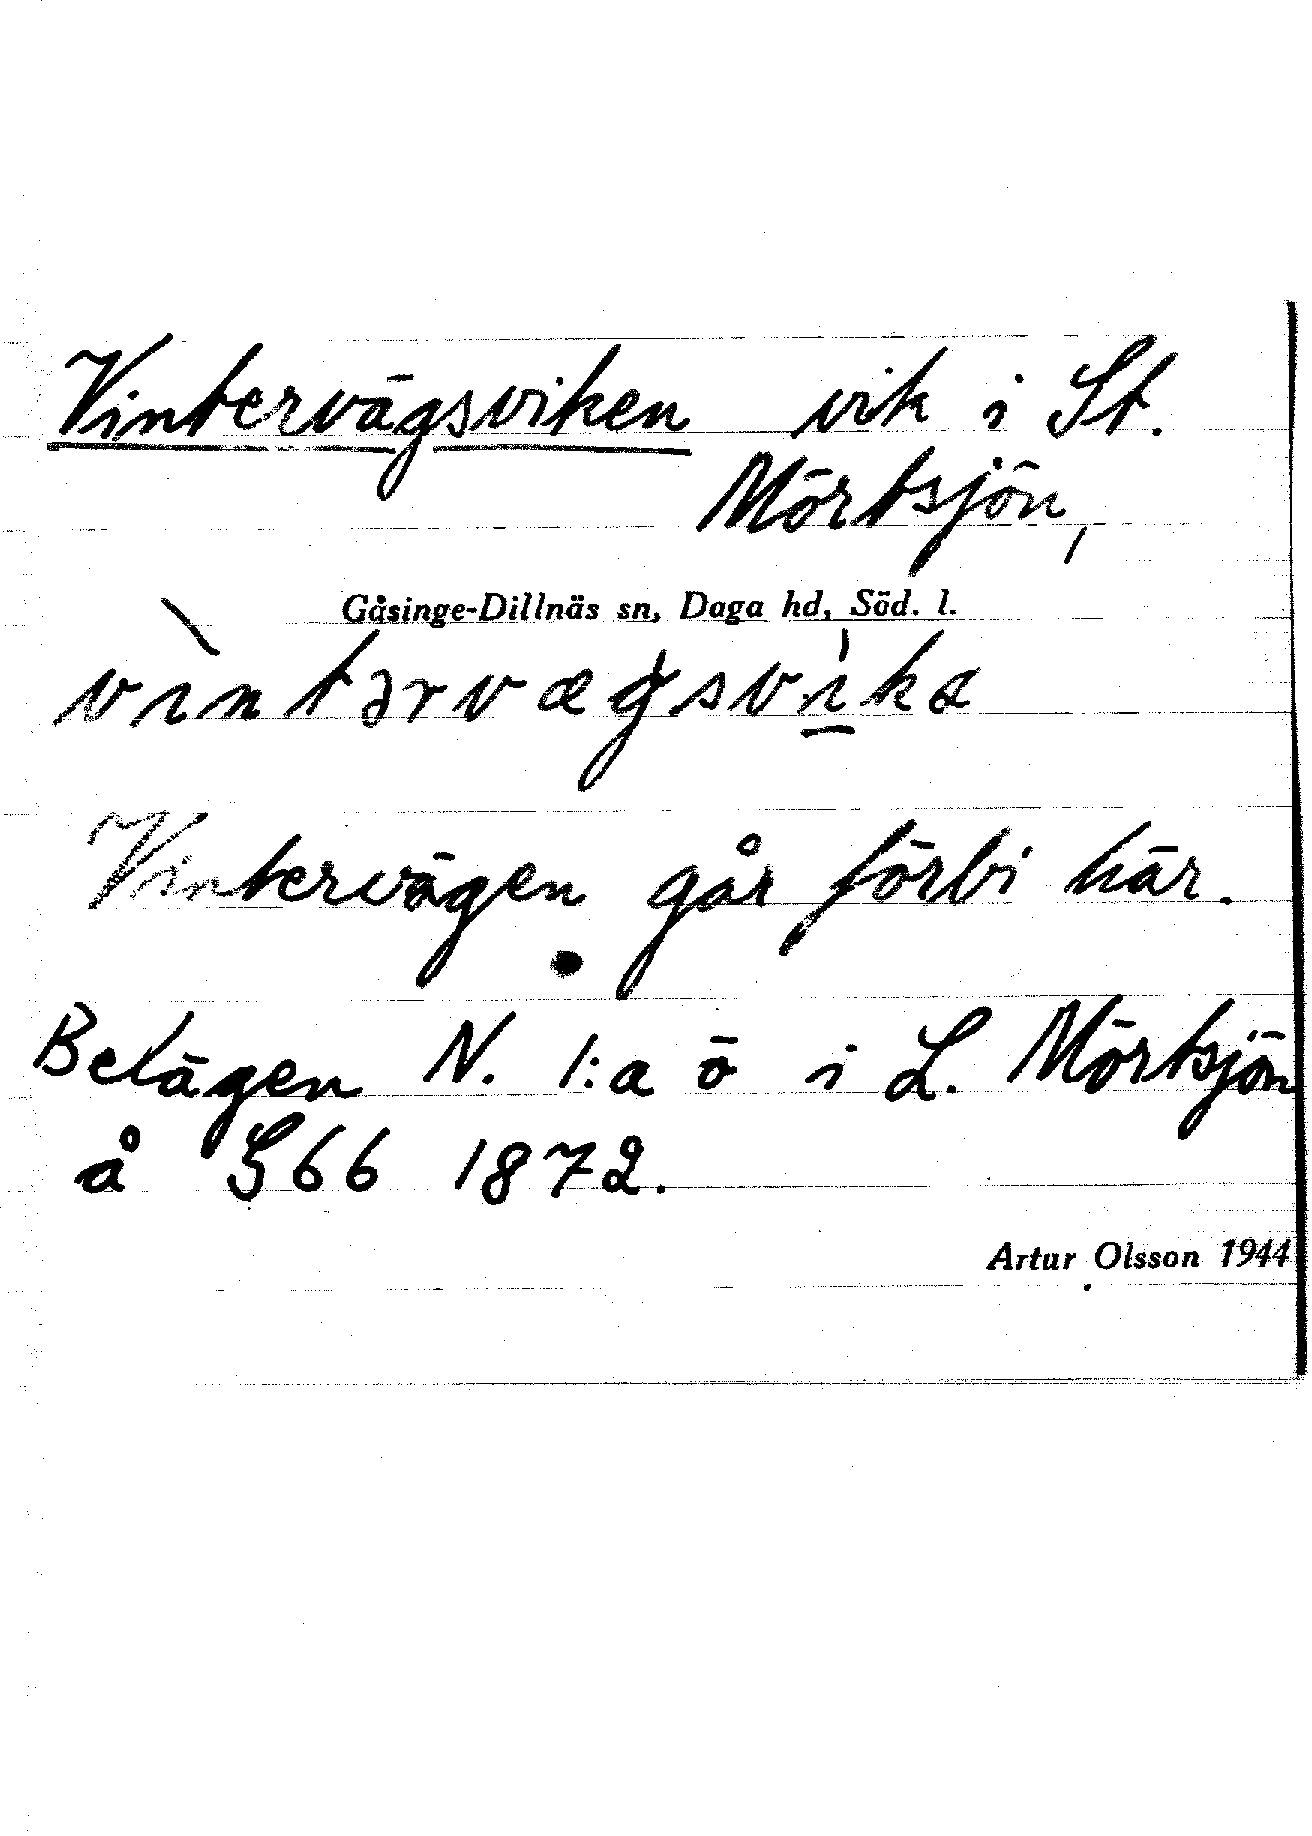 Vintervägsviken vik i St.
Mörtsjön,
Gåsinge-Dillnäs sn, Daga hd, Söd. l.
vìntərvægsvika
Vintervägen går förbi här.
Belägen N. l:a ö i L. Mörtsjön
å S66 1872.
Artur Olsson 1944